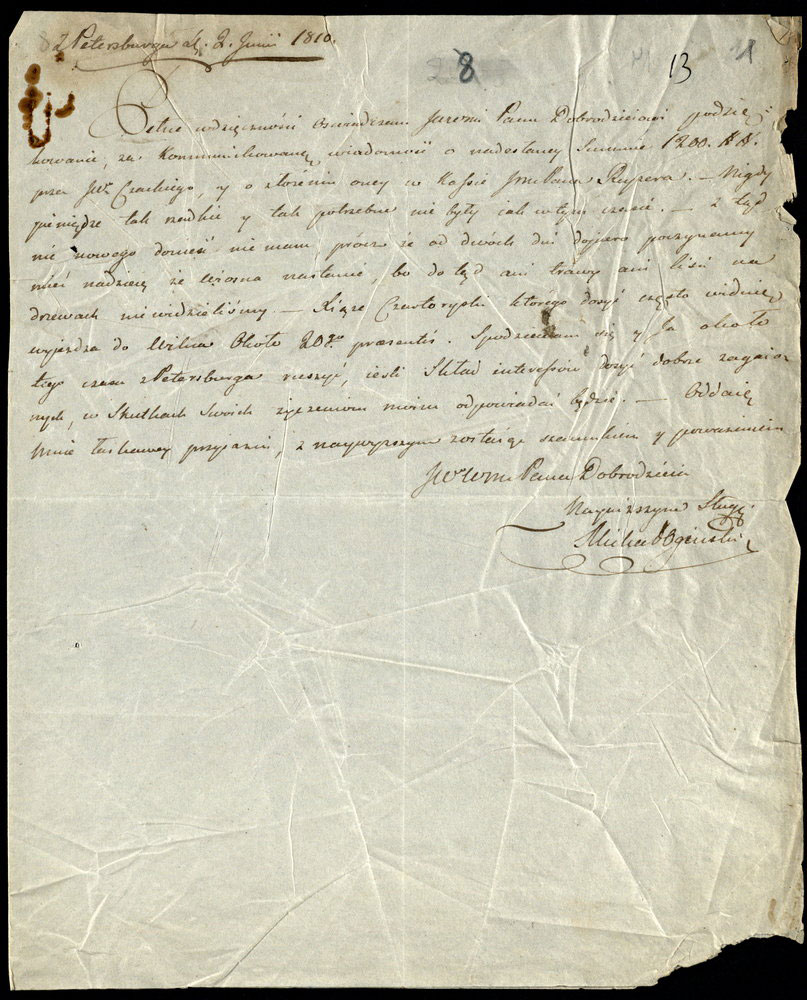 z Petersburga d. 2. Junii 1810.
8 13 11
Pełne wdzięczności oświadczam Panu Dobrodzieiowi podzię-
kowanie, za kommunikowaną wiadomość o nadesłaney Summie 1200. ## 
przez JW. Czackiego, y o złożeniu oney w Kassie Pana Reyzera. — Nigdy
pieniądze tak rzadkie y tak potrzebne nie były iak w tym czasie. — z tąd
nic nowego donieść nie mam prócz że od dwóch dni dopiero poczynamy
mieć nadzieię że wiosna nastanie, bo do tąd ani trawy ani liści na
drzewach nie widzieliśmy — Xiąże Czartoryski którego dosyć często widuię
wyjeżdża do Wilna około 20go praesentis. Spodziewam się y Ja około
tego czasu z Petersburga ruszyć, iesli Skład interessów dosyć dobrze zagaio-
nych, w Skutkach Swoich życzeniom moim odpowiadać będzie. — Oddaię
mnie łaskawey przyiaźni, z naywyższym zostaiąc szacunkiem y poważaniem
JWWm Pana Dobrodzieia
Nayniższym Sługą
Michał Ogiński